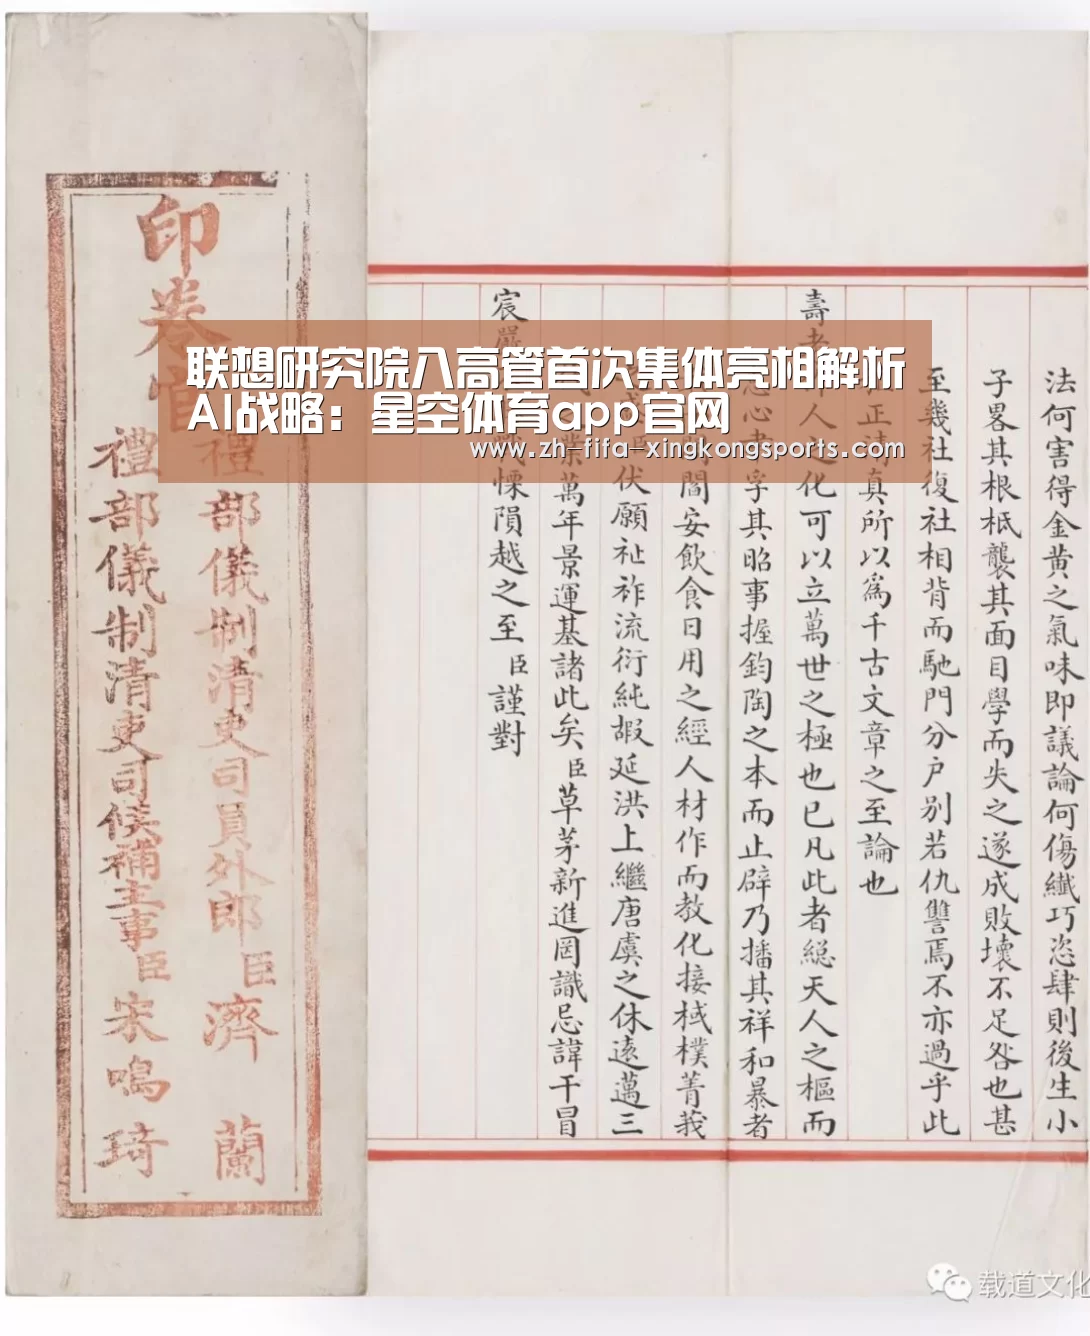 联想研究院八高管首次集体亮相解析
AI战略：星空体育app官网
www.zh-fifa-xingkongsports.com
法何害得金黄之氣味即議論何傷纖巧恣肆則後生小
子畧其根柢襲其面目學而失之遂成敗壞不足咎也甚
至幾社復社相背而馳門分户別若仇讐焉不亦過乎此
正清真所以爲千古文章之至論也
壽考人之化可以立萬世之極也已凡此者緫天人之樞而
心孚其昭事握鈞陶之本而止辟乃播其祥和暴者
閻安飲食日用之經人材作而教化接棫樸菁莪
伏願祉祚流衍純嘏延洪上繼唐虞之休遠邁三
業萬年景運基諸此矣臣草茅新進罔識忌諱干冒
宸嚴慄隕越之至臣謹對
印卷官
禮部儀制清吏司員外郎臣濟蘭
禮部儀制清吏司候補主事臣宋鳴琦
载道文化